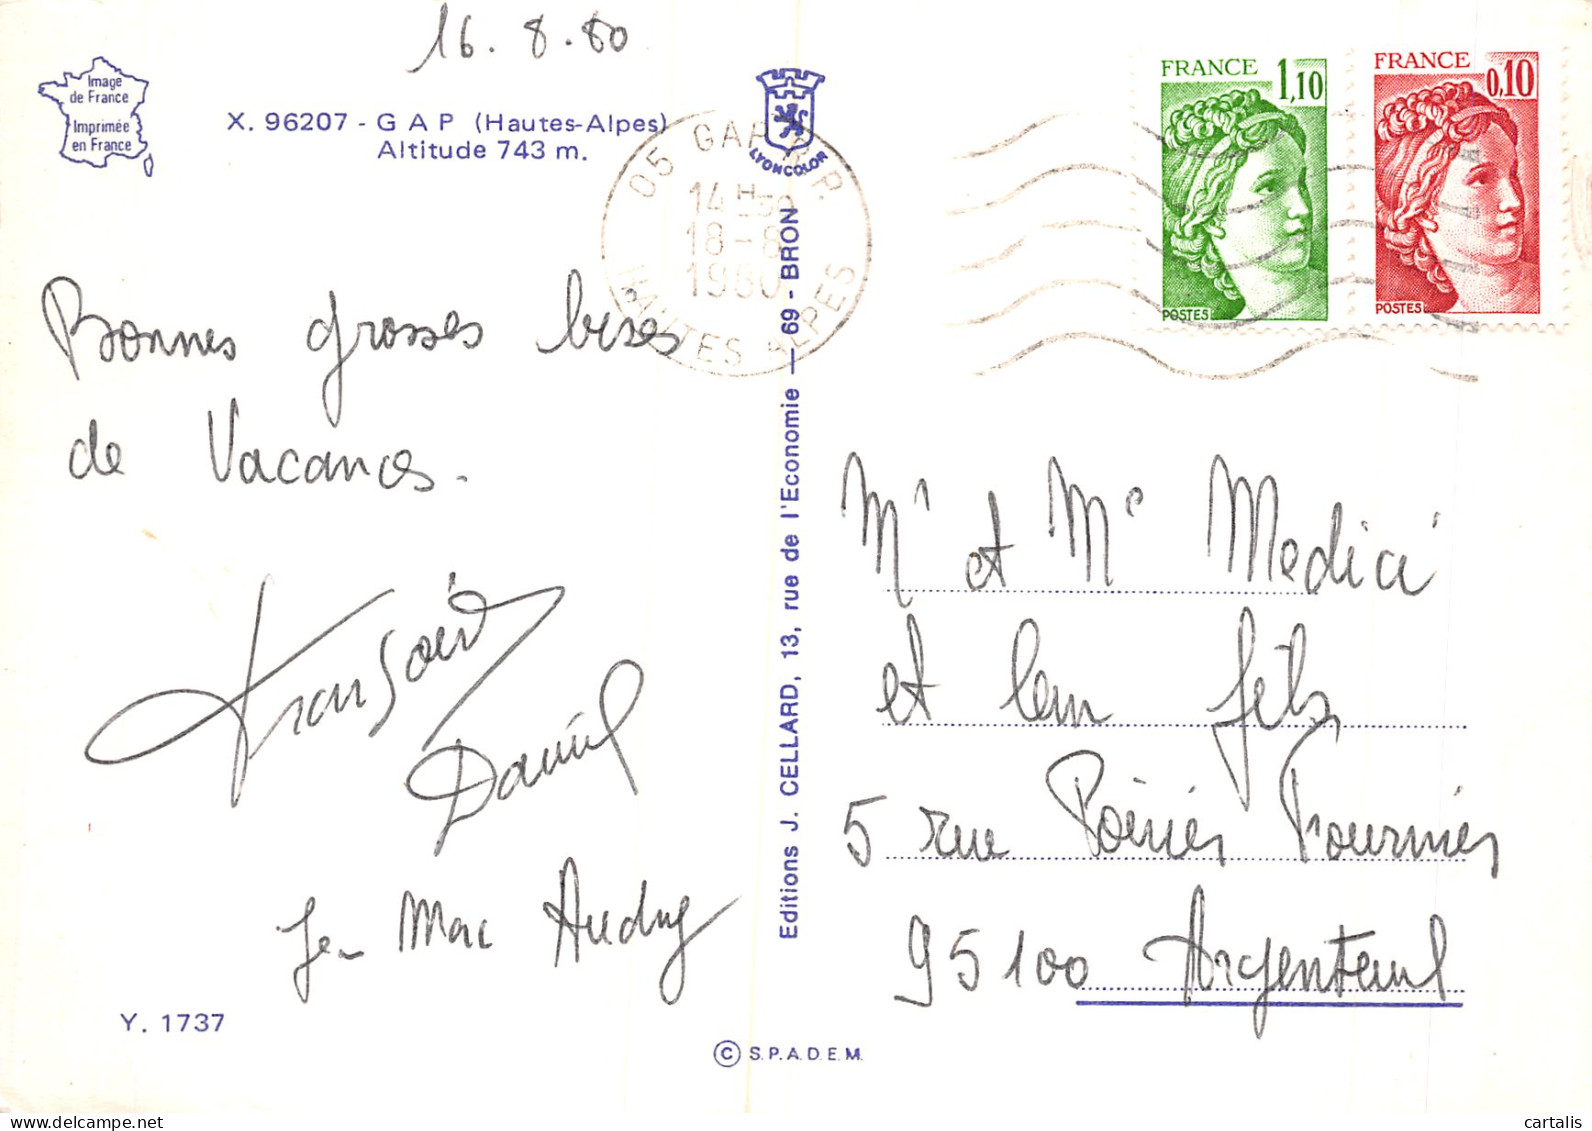 16.8.80
Image
de France
Imprimée
en France
X. 96207 - GAP (Hautes-Alpes)
Altitude 743 m.
LYONCOLOR
05 GAP R.P.
14H30
18-8
1980
HAUTES ALPES
FRANCE 1,10
POSTES
FRANCE 0,10
POSTES
Bonnes grosses bises
de Vacances.
Daniel
Jean Marc Audrey
Y. 1737
Editions J. CELLARD, 13, rue de l'Economie — 69 - BRON
© S.P.A.D.E.M.
Mr et Me Medici
et leur fils
5 rue Poirier Fournier
95100 Argenteuil
cartalis